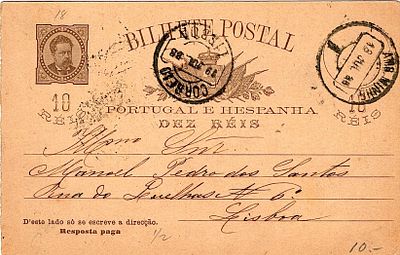 18
BILHETE POSTAL
CORREIO
10
RÉIS
PORTUGAL E HESPANHA
DEZ RÉIS
10
RÉIS
Illmo Snr.
Manoel Pedro dos Santos
Rua do
Nº 6º
Lisboa
D'este lado só se escreve a direcção.
Resposta paga
1/2
10.-